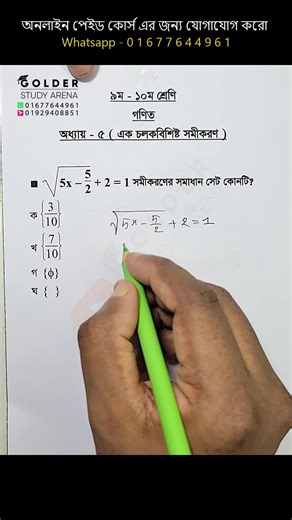 অনলাইন পেইড কোর্স এর জন্য যোগাযোগ করো
Whatsapp - 0 1 6 7 7 6 4 4 9 6 1
GOLDER
STUDY ARENA
01677644961
01929408851
৯ম - ১০ম শ্রেণি
গণিত
অধ্যায় - ৫ ( এক চলকবিশিষ্ট সমীকরণ )
■ √(5x − 5/2) + 2 = 1 সমীকরণের সমাধান সেট কোনটি?
ক {3/10}
খ {7/10}
গ {ϕ}
ঘ { }
√(5x − 5/2) + 2 = 1